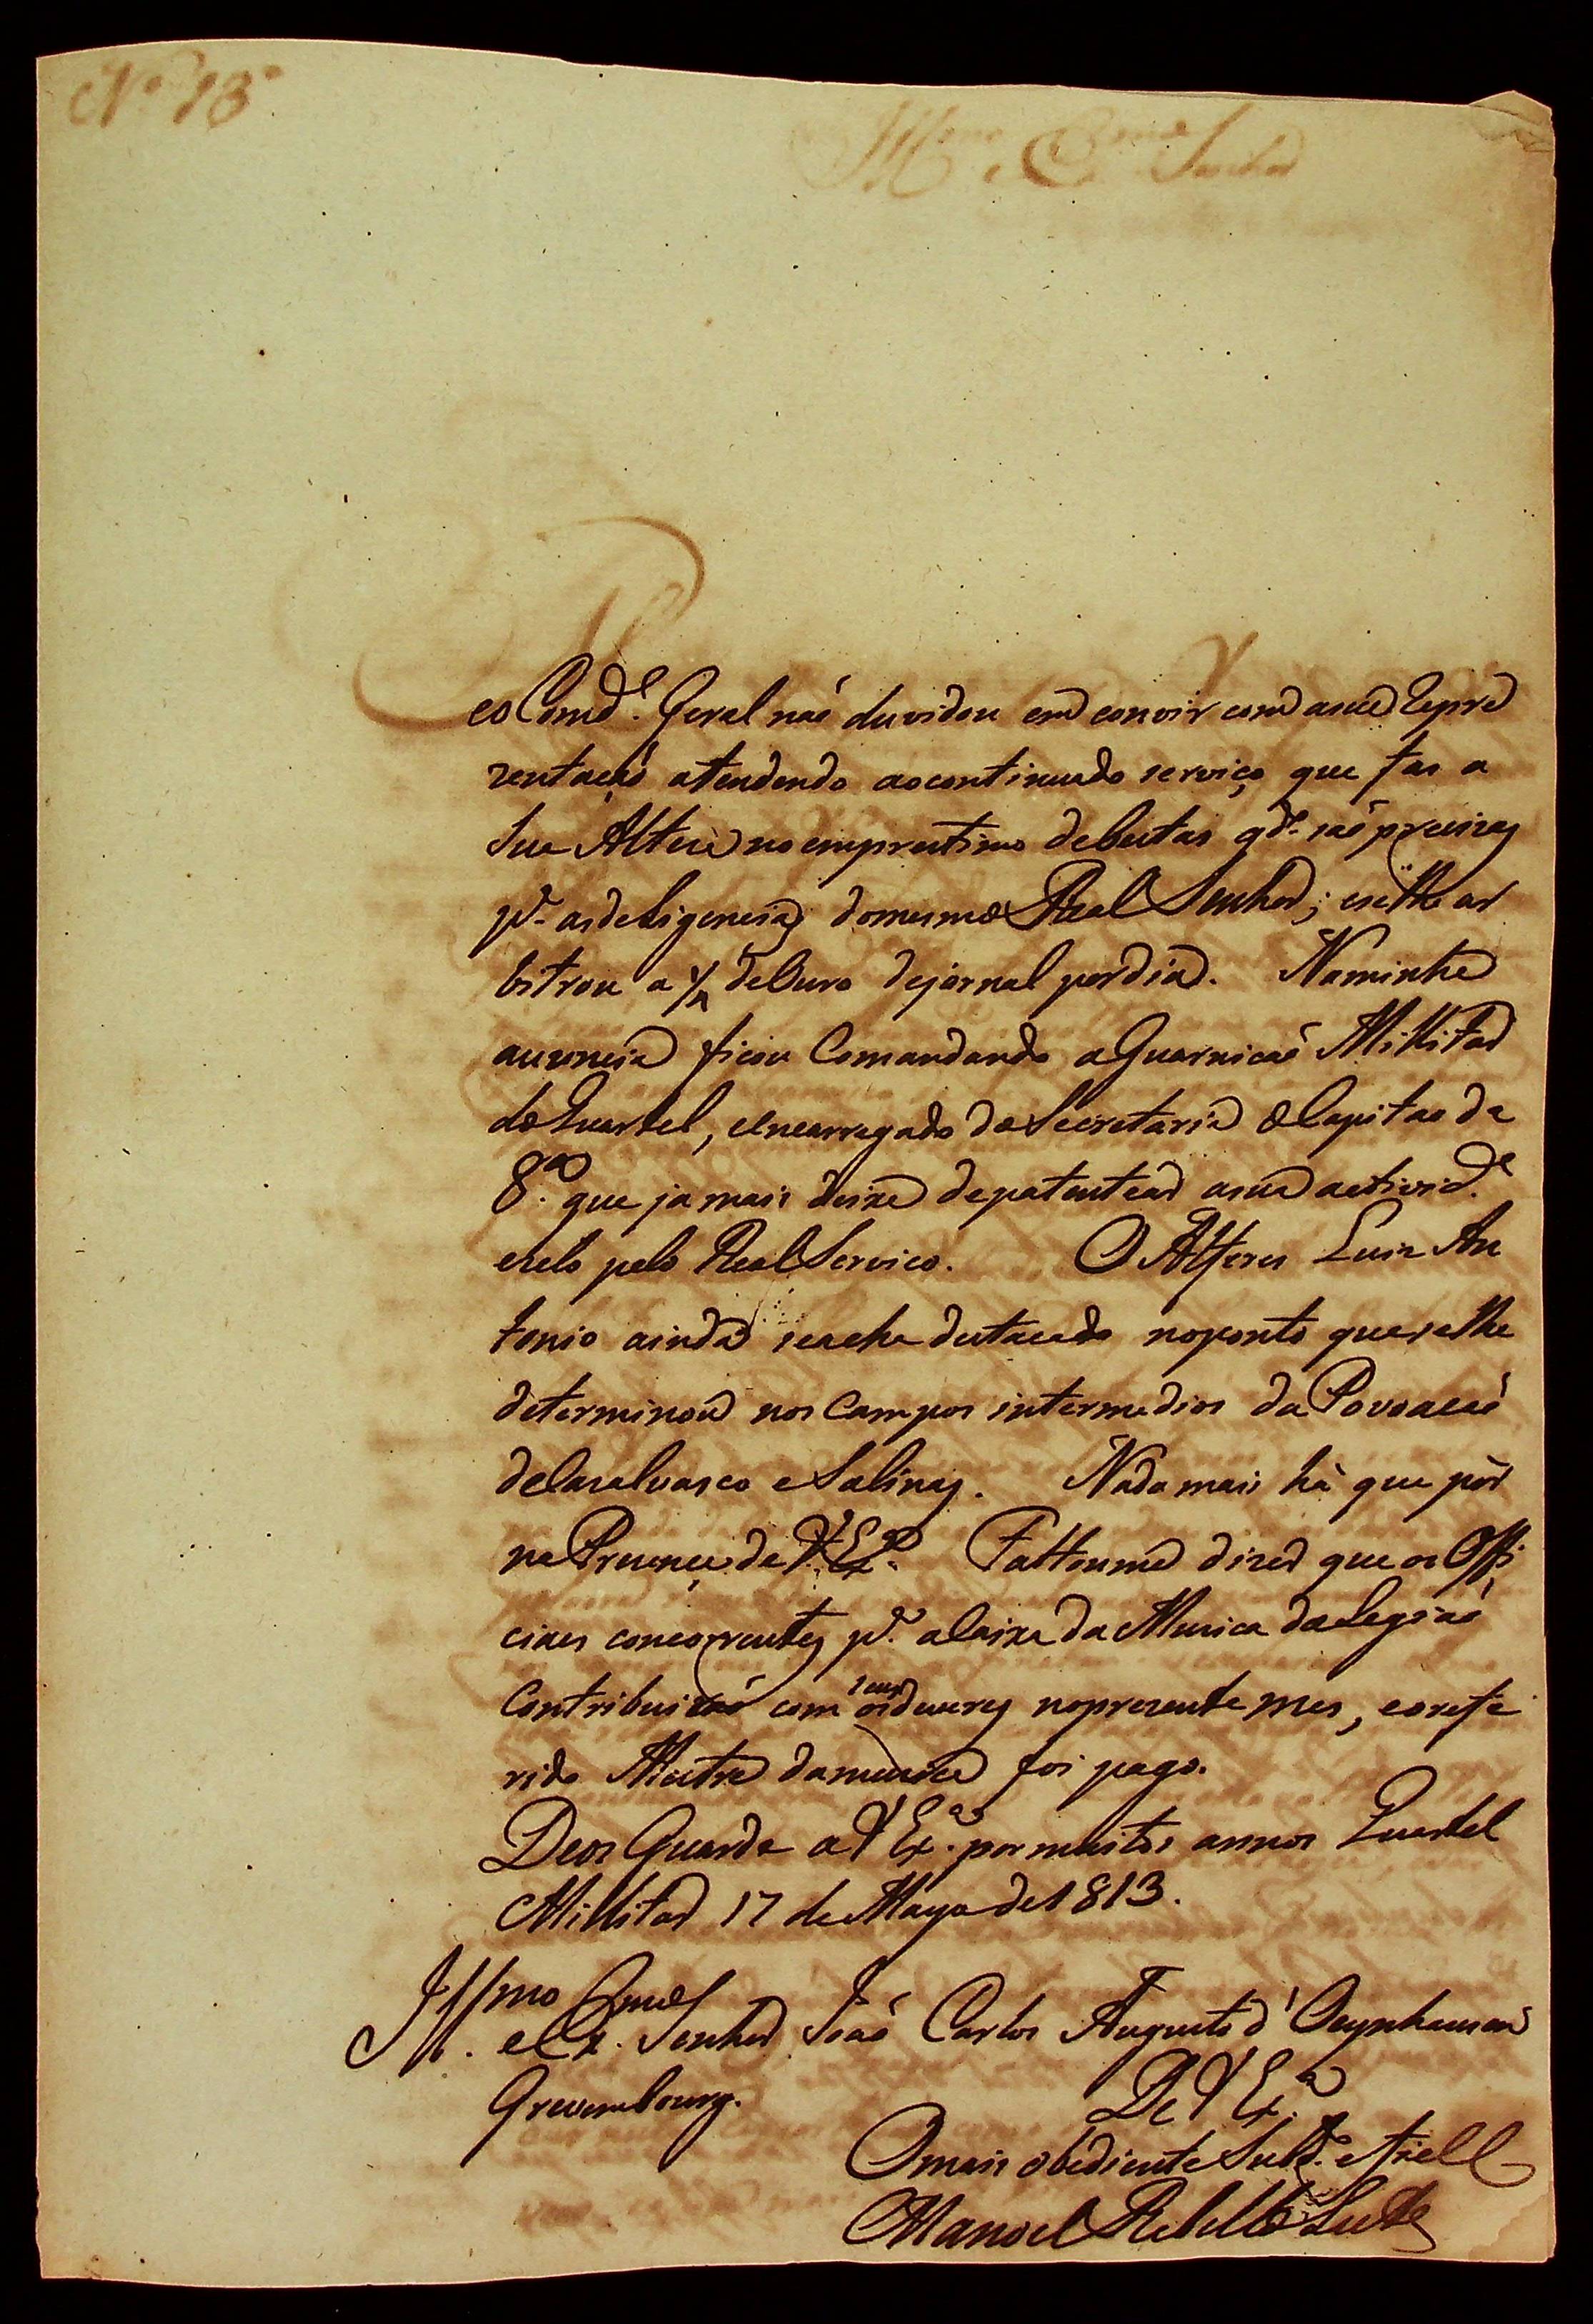 Nº 18º
Illmo e Exmo Senhor
eo Comde. Geral naõ duvidou em convir com asua Repre
zentaçaõ atendendo aocontinuado serviço que fas a
Sua Alteza no emprestimo debestas qdo. saõ precizas
pa. asdeligencias domesmo Real Senhor; eselhe ar
bitrou a 1/4 deOuro dejornal pordia. Naminha
auzencia ficou Comandando aGuarnicaõ Millitar
doQuartel, eencarregado daSecretaria oCapitao da
8.a que ja mais deixa depatentear asua activide.
ezelo pelo Real Servico. O Alferes Luiz An
tonio ainda seacha destacado noponto queselhe
determinou nos Campos intermedios da Povoacaõ
deCasalvasco e Salinas. Nada mais há que pôr
na Prezença de V. Exa. Faltoume dizer que os Offi
ciaes concorrentes pa. aCaixa da Muzica daLegiaõ
Contribuiraõ com seus osdeveres noprezente mes, eorefe
rido Mestre damuzica foi pago.
Deos Guarde a V Exa. por muitos annos Quartel
Millitar 17 de Mayo de 1813.
Illmo. e Exmo. Senhor Joaõ Carlos Augusto d'Oeynhausen
Grevembourg.
De V Exa.
Omais obediente Subdo. e fiell
Manoel Rebello Leite